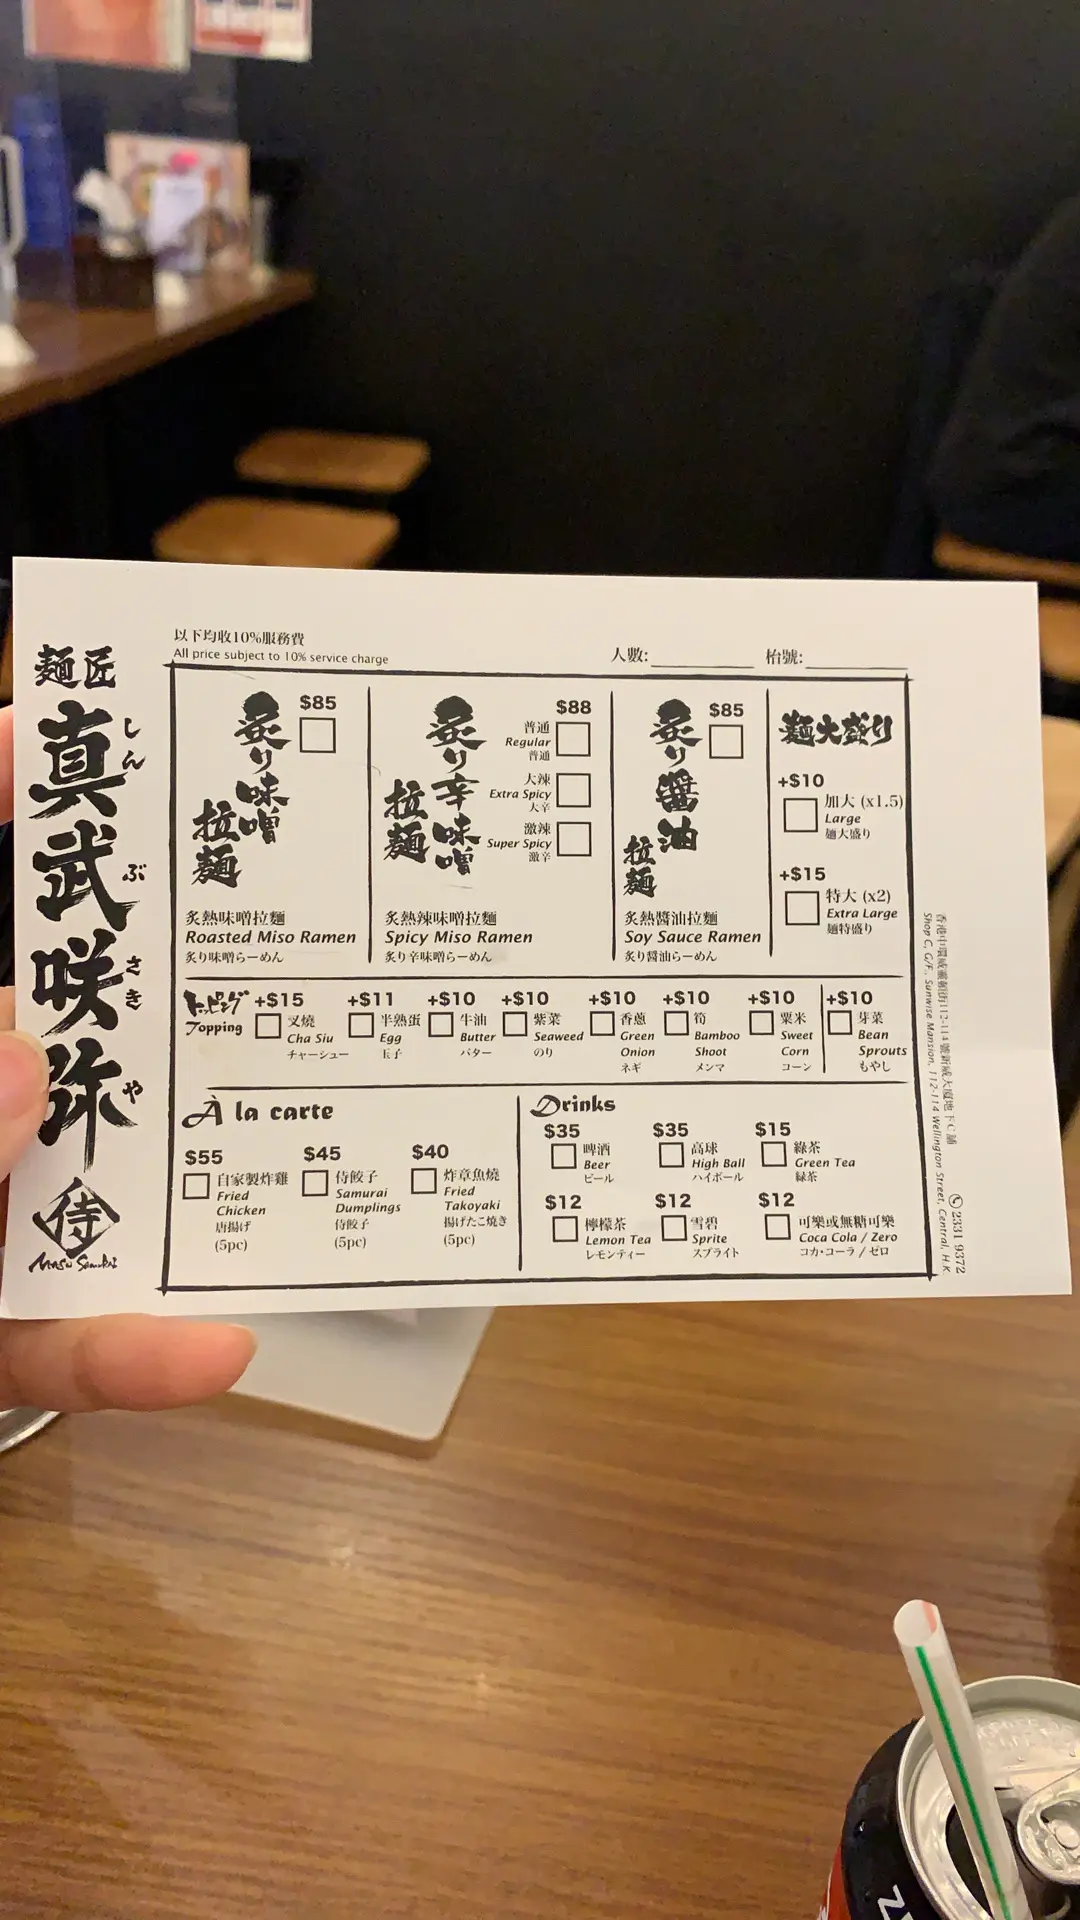 麵匠
真武咲弥
しんぶさきや
侍
Masu Samurai
以下均收10%服務費
All price subject to 10% service charge
人數:
枱號:
炙り味噌
拉麺
$85
炙熱味噌拉麵
Roasted Miso Ramen
炙り味噌らーめん
炙り辛味噌
拉麺
$88
普通
Regular
普通
大辣
Extra Spicy
大辛
激辣
Super Spicy
激辛
炙熱辣味噌拉麵
Spicy Miso Ramen
炙り辛味噌らーめん
炙り醬油
拉麺
$85
炙熱醬油拉麵
Soy Sauce Ramen
炙り醤油らーめん
麺大盛り
+$10
加大 (x1.5)
Large
麺大盛り
+$15
特大 (x2)
Extra Large
麺特盛り
トッピング
Topping
+$15
叉燒
Cha Siu
チャーシュー
+$11
半熟蛋
Egg
玉子
+$10
牛油
Butter
バター
+$10
紫菜
Seaweed
のり
+$10
香蔥
Green
Onion
ネギ
+$10
筍
Bamboo
Shoot
メンマ
+$10
粟米
Sweet
Corn
コーン
+$10
芽菜
Bean
Sprouts
もやし
À la carte
$55
自家製炸雞
Fried
Chicken
唐揚げ
(5pc)
$45
侍餃子
Samurai
Dumplings
侍餃子
(5pc)
$40
炸章魚燒
Fried
Takoyaki
揚げたこ焼き
(5pc)
Drinks
$35
啤酒
Beer
ビール
$35
高球
High Ball
ハイボール
$15
綠茶
Green Tea
緑茶
$12
檸檬茶
Lemon Tea
レモンティー
$12
雪碧
Sprite
スプライト
$12
可樂或無糖可樂
Coca Cola / Zero
コカ・コーラ / ゼロ
香港中環威靈頓街112-114號新威大廈地下C舖
Shop C, G/F., Sunwise Mansion, 112-114 Wellington Street, Central, H.K.
2331 9372